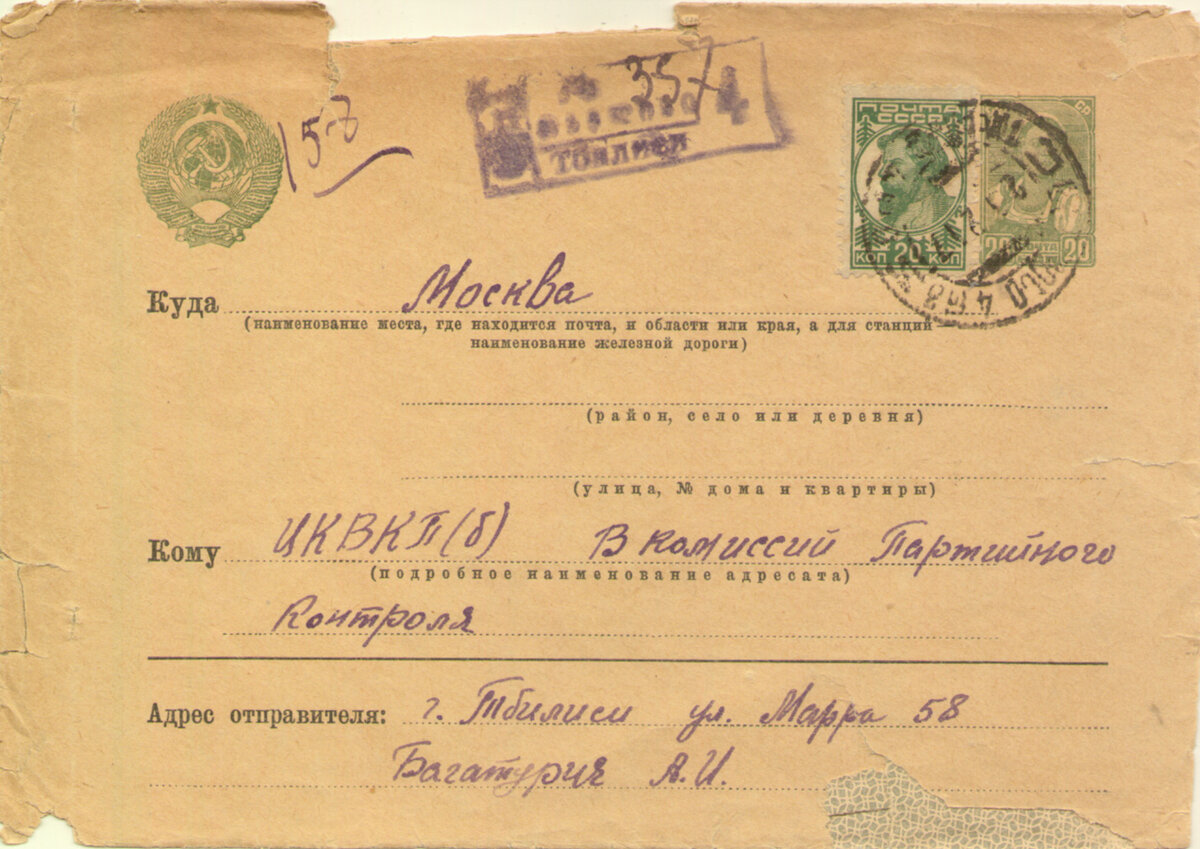 № 357 4
Тбилиси
15-8
ПОЧТА
СССР
20
КОП КОП
20 20
Куда Москва
(наименование места, где находится почта, и области или края, а для станций
наименование железной дороги)
(район, село или деревня)
(улица, № дома и квартиры)
Кому ЦКВКП(б) В комиссий Партийного
(подробное наименование адресата)
Контроля
Адрес отправителя: г. Тбилиси ул. Марра 58
Багатурия А.И.